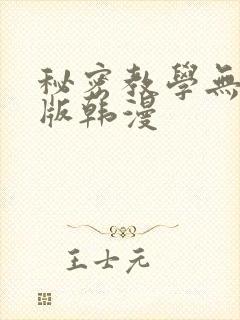 秘密教學無
版韩漫
王士元